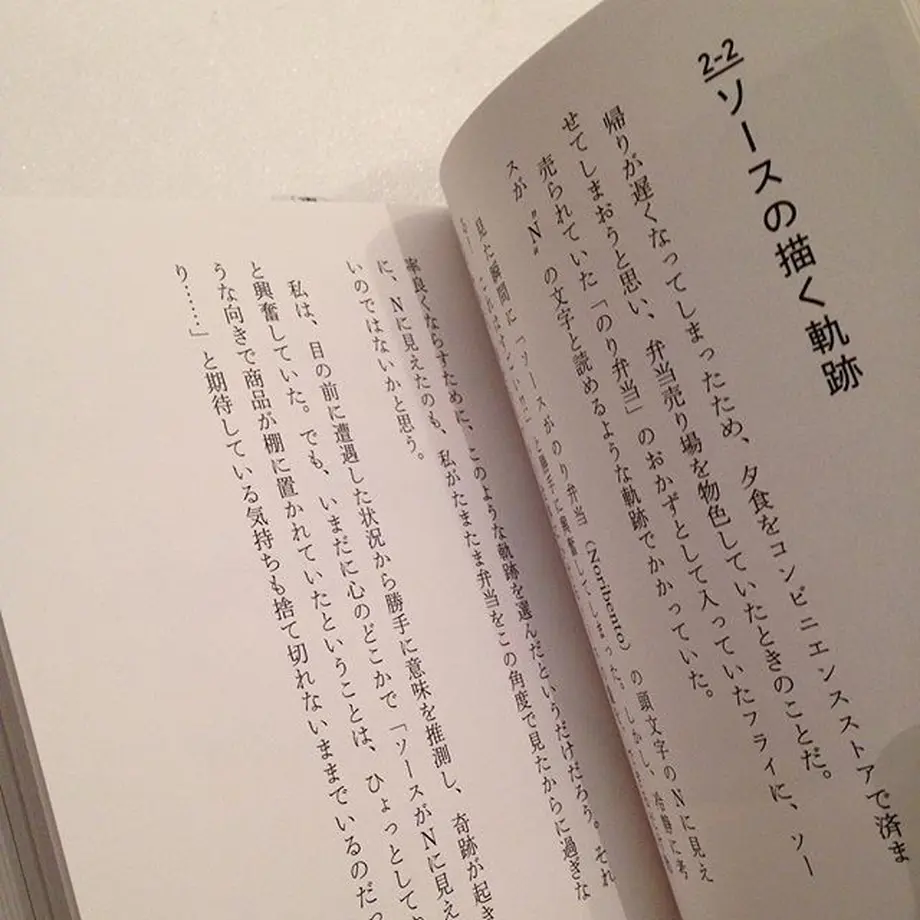 2-2
ソースの描く軌跡
帰りが遅くなってしまったため、夕食をコンビニエンスストアで済ま
せてしまおうと思い、弁当売り場を物色していたときのことだ。
売られていた「のり弁当」のおかずとして入っていたフライに、ソー
スが〝N〟の文字と読めるような軌跡でかかっていた。
見た瞬間に「ソースがのり弁当(Noribento)の頭文字のNに見え
と勝手に興奮してしまった。しかし、冷静に考
率良くならすために、このような軌跡を選んだというだけだろう。それ
に、Nに見えたのも、私がたまたま弁当をこの角度で見たからに過ぎな
いのではないかと思う。
私は、目の前に遭遇した状況から勝手に意味を推測し、奇跡が起き
と興奮していた。でも、いまだに心のどこかで「ソースがNに見え
うな向きで商品が棚に置かれていたということは、ひょっとして
り……」と期待している気持ちも捨て切れないままでいるのだっ